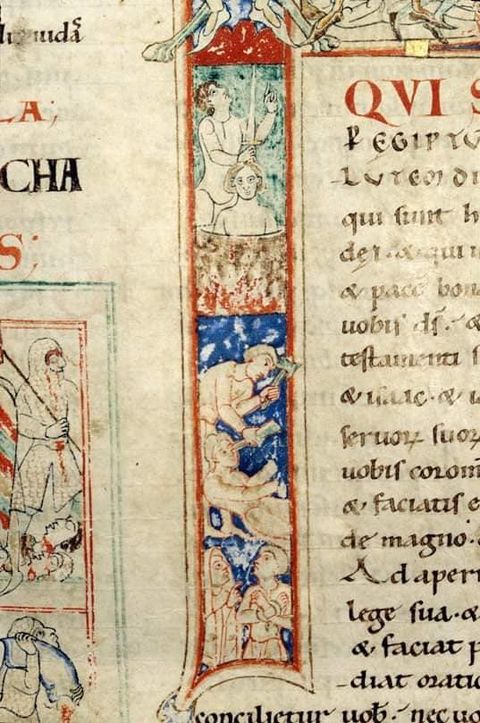 LA;
CHA
S;
QVI S
P EGIPTU
LUTEM DI
qui sunt h
dei · & qui i
& pacē bon
uobis ds̄ · &
testamenti s
& isaac · & i
seruoꝝ suoꝝ
uobis cor om̄
& faciatis e
de magno ·
Adaperi
lege sua · &
& faciat p
diat oratio
concilietur uob · nec uo